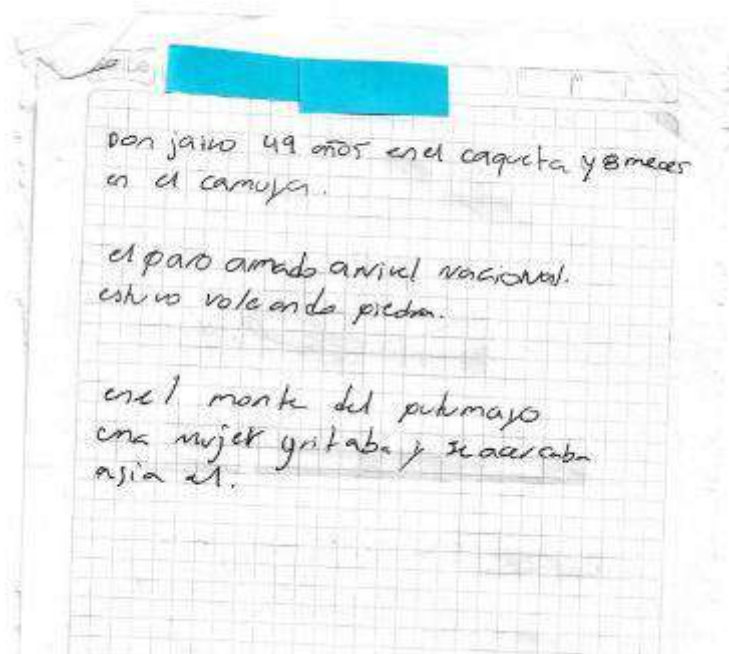 Don jairo 49 años en el caqueta y 8 meces
en el camuya.
el paro armado anivel nacional.
estuvo voleando piedra.
en el monte del putumayo
una mujer gritaba y se acercaba
asia el.